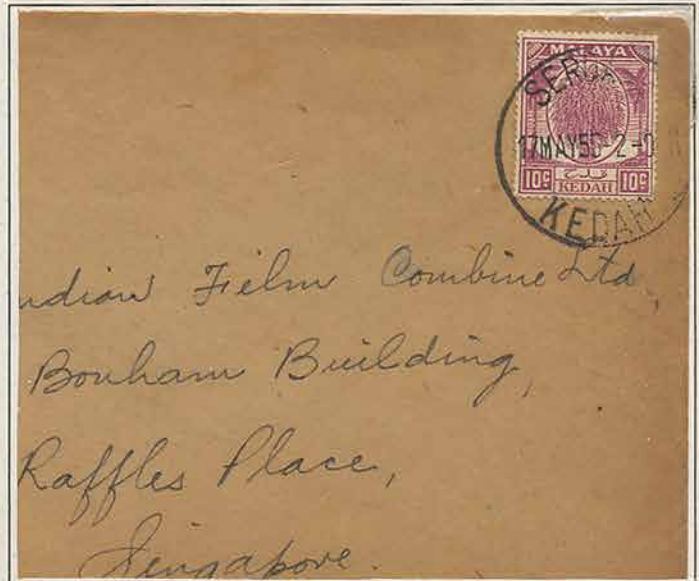 MALAYA
17MAY55-2-0
10c قدح 10c
KEDAH
KEDAH
ndian Film Combine Ltd
Bonham Building,
Raffles Place,
Singapore.